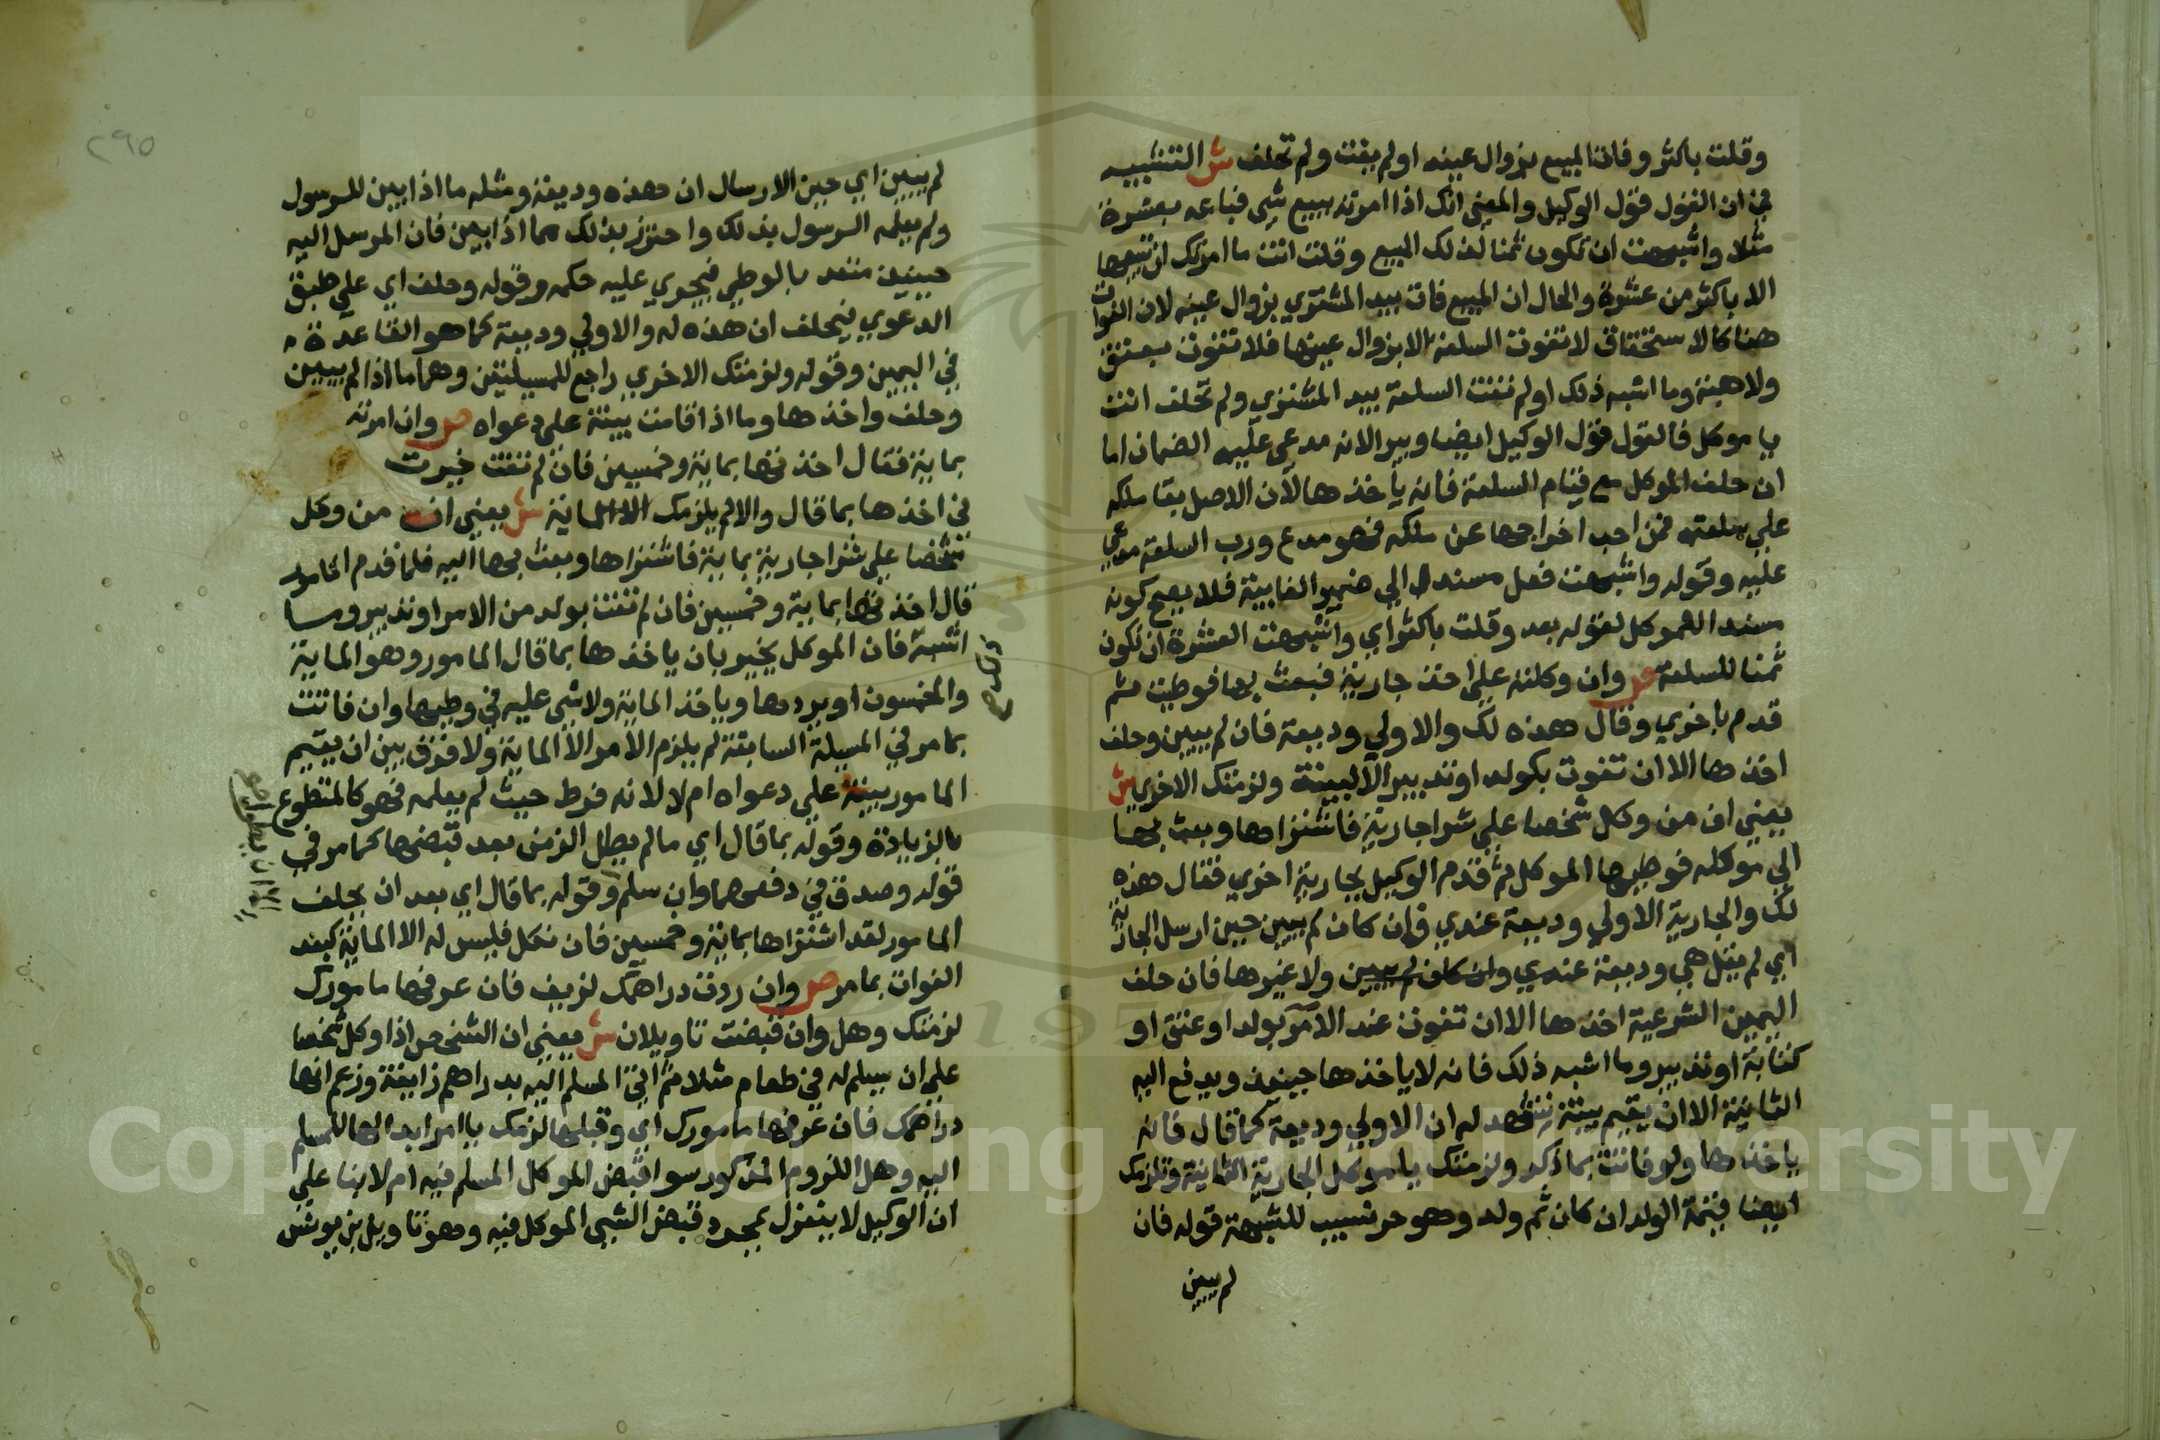 وقلت باكثر وفات المبيع بزوال عينه او لم يفت ولم تحلف ش التشبيه
في ان القول قول الوكيل والمعني انك اذا امرته ببيع شي فباعه بعشرة
مثلا واشبهت ان تكون ثمنا لذلك المبيع وقلت انت ما امرتك ان تبيعها
الا باكثر من عشرة والحال ان المبيع فات بيد المشتري بزوال عينه لان الفوات
هنا كالاستحقاق لا تفوت السلعة الا بزوال عينها فلا تفوت بعتق
ولا هبة وما اشبه ذلك او لم تفت السلعة بيد المشتري ولم تحلف انت
يا موكل فالقول قول الوكيل ايضا ويبرا لانه مدعي عليه الضمان اما
ان حلف الموكل مع قيام السلعة فانه يأخذها لان الاصل بقا ملكه
علي سلعته فمن احب اخراجها عن ملكه فهو مدع ورب السلعة مدعي
عليه وقوله واشبهت فعل مسند الي ضمير الغايبة فلا يصح كونه
مسندا للموكل لقوله بعد وقلت باكثر اي واشبهت العشرة ان تكون
ثمنا للسلعة ص وان وكلته علي اخذ جارية فبعث بها فوطيت ثم
قدم باخري وقال هذه لك والاولي وديعة فان لم يبين وحلف
اخذها الا ان تفوت بكولد او تدبير الا لبينة ولزمتك الاخري ش
يعني ان من وكل شخصا علي شرا جارية فاشتراها وبعث بها
الي موكله فوطيها الموكل ثم قدم الوكيل بجارية اخري فقال هذه
لك والجارية الاولي وديعة عندي فان كان لم يبين حين ارسل الجارية
اي لم يقل هي وديعة عندي وان كان لم يبين ولا غيرها فان حلف
اليمين الشرعية اخذها الا ان تفوت عند الآمر بولد او عتق او
كتابة او تدبير وما اشبه ذلك فانه لا ياخذها حينئذ ويدفع اليه
الثانية الا ان يقيم بينة تشهد له ان الاولي وديعة كما قال فانه
ياخذها ولو فاتت بما ذكر ولزمتك يا موكل الجارية الثانية وتلزمك
ايضا قيمة الولد ان كان ثم ولد وهو حر نسيب للشبهة قوله فان
لم يبين
٢٩٥
لم يبين اي حين الارسال ان هذه وديعة ومثله ما اذا بين للرسول
ولم يعلمه الرسول بذلك واحترز بذلك مما اذا بين فان المرسل اليه
حينئذ متعد بالوطي فيجري عليه حكمه وقوله وحلف اي علي طبق
الدعوي فيحلف ان هذه له والاولي وديعة كما هو القاعدة
في اليمين وقوله ولزمتك الاخري راجع للمسيلتين وهما ما اذا لم يبين
وحلف واخذها وما اذا قامت بينة علي دعواه ص وان امرته
بماية فقال اخذتها بماية وخمسين فان لم تفت خيرت
في اخذها بما قال والا لم يلزمك الا الماية ش يعني ان من وكل
شخصا علي شرا جارية بماية فاشتراها وبعث بها اليه فلما قدم المامور
قال اخذتها بماية وخمسين فان لم تفت بولد من الامر او تدبير وما
اشبه فان الموكل يخير بان ياخذها بما قال المامور وهو الماية
والخمسون او يردها وياخذ الماية ولا شي عليه في وطيها وان فاتت
بما مر في المسيلة السابقة لم يلزم الآمر الا الماية ولا فرق بين ان يقيم
المامور بينة علي دعواه ام لا لانه فرط حيث لم يعلمه فهو كالمتطوع
بالزيادة وقوله بما قال اي ما لم يطل الزمن بعد قبضها كما مر في
قوله وصدق في دفعهما وان سلم وقوله بما قال اي بعد ان يحلف
المامور لقد اشتراها بماية وخمسين فان نكل فليس له الا الماية كبعد
الفوات بما مر ص وان ردت دراهمك لزيف فان عرفها مامورك
لزمتك وهل وان قبضت تاويلان ش يعني ان الشخص اذا وكل شخصا
علي ان يسلم له في طعام مثلا ثم اتي المسلم اليه بدراهم زايفة وزعم انها
دراهمك فان عرفها مامورك اي وقبلها لزمك يا امر ابدالها للمسلم
اليه وهل اللزوم المذكور سوا قبض الموكل المسلم فيه ام لا بنا علي
ان الوكيل لا ينعزل بمجرد قبض الشي الموكل فيه وهو تاويل بن يونس